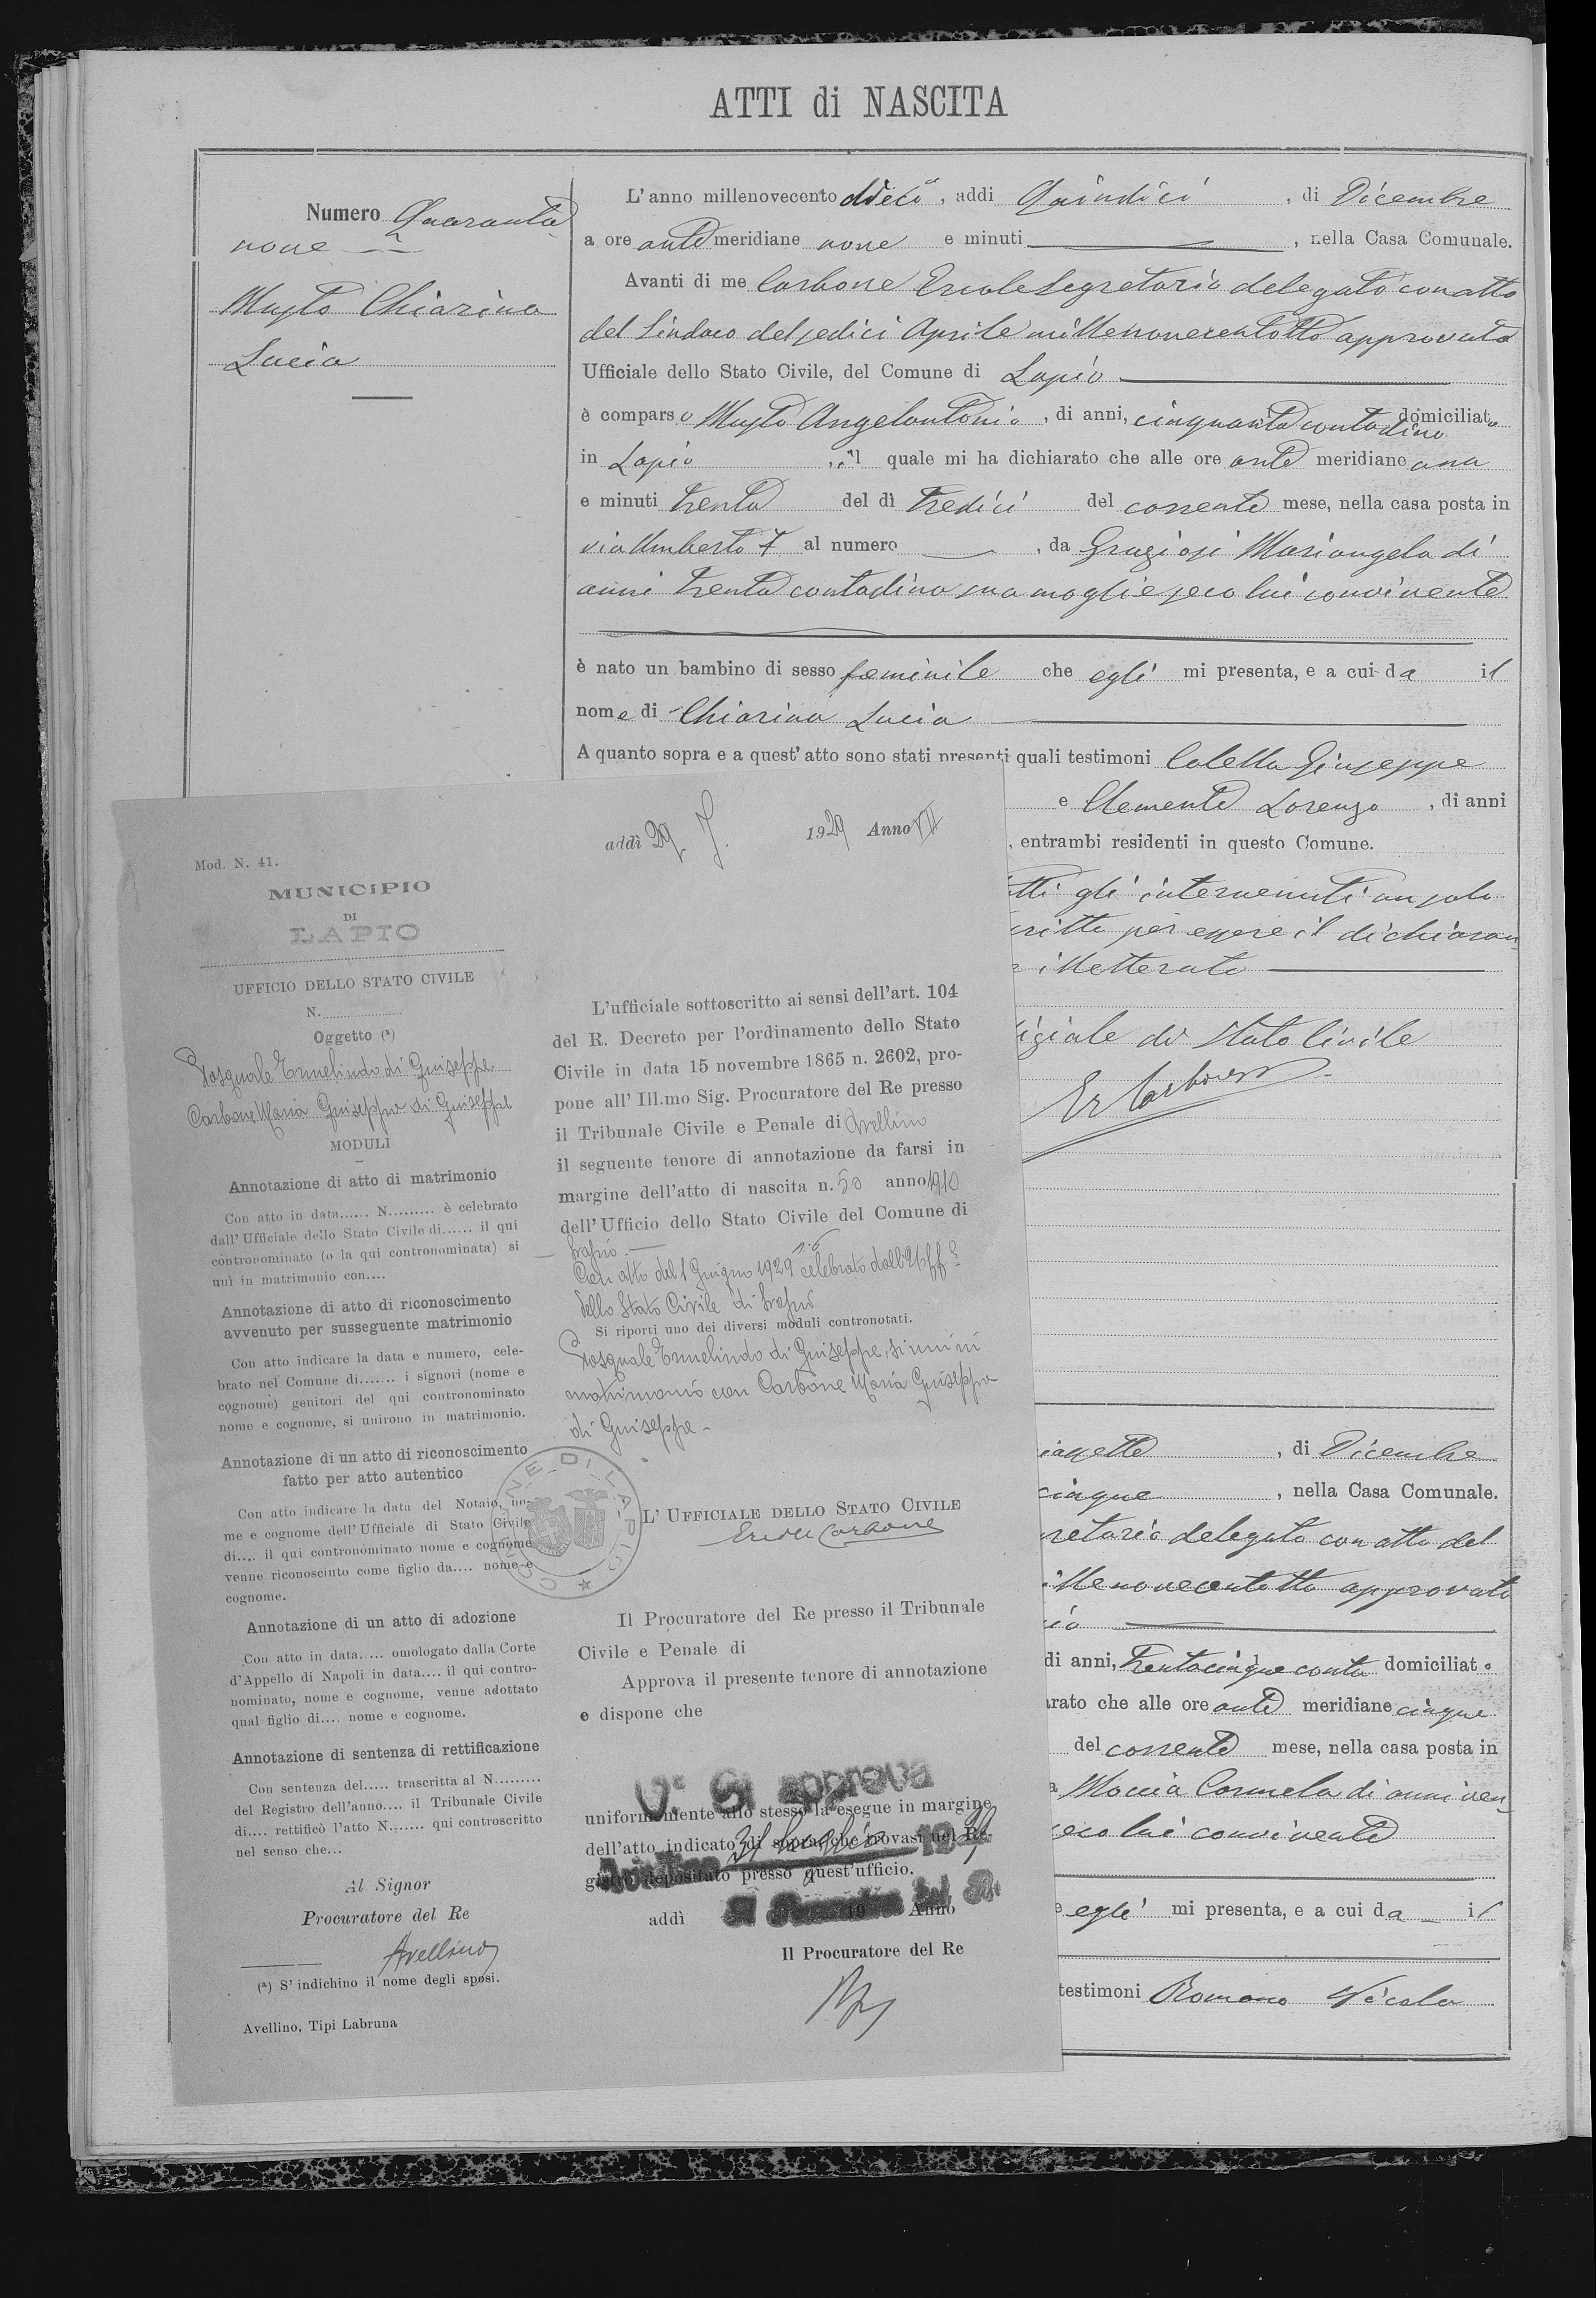 ATTI di NASCITA
Numero Quaranta
nove
Musto Chiarina
Lucia
L'anno millenovecento dieci, addi Quindici, di Dicembre
a ore antemeridiane nove e minuti, nella Casa Comunale.
Avanti di me Carbone Ercole Segretario delegato con atto
del Sindaco del sedici Aprile millenovecentotto approvato
Ufficiale dello Stato Civile, del Comune di Lapio
è comparso Musto Angelantonio, di anni, cinquanta contadino domiciliato
in Lapio, il quale mi ha dichiarato che alle ore ante meridiane una
e minuti trenta del dì tredici del corrente mese, nella casa posta in
via Umberto I al numero, da Graziosi Mariangela di
anni trenta contadina sua moglie seco lui convivente
è nato un bambino di sesso feminile che egli mi presenta, e a cui da il
nome di Chiarina Lucia
A quanto sopra e a quest' atto sono stati presenti quali testimoni Calella Giuseppe
e Clemente Lorenzo, di anni
, entrambi residenti in questo Comune.
tti gli intervenuti
critto per essere il dichiaran
illetterato
iziale di Stato Civile
Er Carbone
Mod. N. 41.
MUNICIPIO
DI
LAPIO
UFFICIO DELLO STATO CIVILE
N.
Oggetto (a)
Pasquale Ermelindo di Giuseppe
Carbone Maria Giuseppa di Giuseppe
MODULI
Annotazione di atto di matrimonio
Con atto in data...... N......... è celebrato
dall' Ufficiale dello Stato Civile di...... il qui
contronominato (o la qui contronominata) si
unì in matrimonio con....
Annotazione di atto di riconoscimento
avvenuto per susseguente matrimonio
Con atto indicare la data e numero, cele-
brato nel Comune di....... i signori (nome e
cognome) genitori del qui contronominato
nome e cognome, si unirono in matrimonio.
Annotazione di un atto di riconoscimento
fatto per atto autentico
Con atto indicare la data del Notaio, no-
me e cognome dell' Ufficiale di Stato Civile
di.... il qui contronominato nome e cognome
venne riconosciuto come figlio da.... nome e
cognome.
Annotazione di un atto di adozione
Con atto in data..... omologato dalla Corte
d'Appello di Napoli in data.... il qui contro-
nominato, nome e cognome, venne adottato
qual figlio di.... nome e cognome.
Annotazione di sentenza di rettificazione
Con sentenza del..... trascritta al N.........
del Registro dell'anno.... il Tribunale Civile
di.... rettificò l'atto N....... qui controscritto
nel senso che...
Al Signor
Procuratore del Re
Avellino
(a) S' indichino il nome degli sposi.
Avellino, Tipi Labruna
addì 29 1929 Anno VII
L'ufficiale sottoscritto ai sensi dell'art. 104
del R. Decreto per l'ordinamento dello Stato
Civile in data 15 novembre 1865 n. 2602, pro-
pone all' Ill.mo Sig. Procuratore del Re presso
il Tribunale Civile e Penale di Avellino
il seguente tenore di annotazione da farsi in
margine dell'atto di nascita n. 50 anno 1910
dell' Ufficio dello Stato Civile del Comune di
Lapio
Con atto del 1 Giugno 1929 n. 6 celebrato dall'Uff.
dello Stato Civile di Lapio
Si riporti uno dei diversi moduli contronotati.
Pasquale Ermelindo di Giuseppe, si unì in
matrimonio con Carbone Maria Giuseppa
di Giuseppe
COMUNE DI LAPIO
L' UFFICIALE DELLO STATO CIVILE
Ercole Carbone
Il Procuratore del Re presso il Tribunale
Civile e Penale di
Approva il presente tenore di annotazione
e dispone che
V° Si approva
uniformemente allo stesso la esegue in margine
dell'atto indicato di sopra, che trovasi nel Re-
gistro depositato presso quest'ufficio.
Avellino 31 Luglio 1929
addì 19 Anno
Il Procuratore del Re
, di Dicembre
cinque, nella Casa Comunale.
retario delegato con atto del
illenovecentotto approvato
di anni, trentacinque conta domiciliato
arato che alle ore ante meridiane cinque
del corrente mese, nella casa posta in
a Moccia Carmela di anni ven
seco lui convivente
e egli mi presenta, e a cui da il
testimoni Romano Nicola